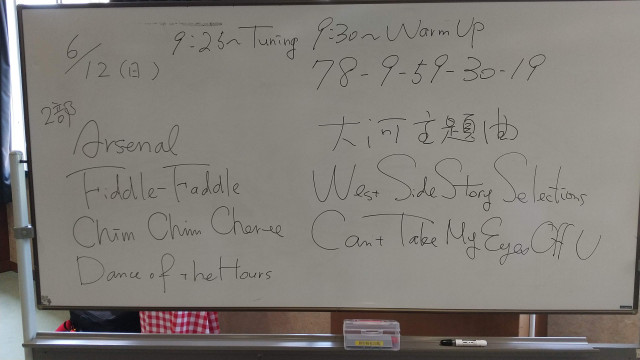 6/12(日) 9:25~Tuning 9:30~Warm Up
78-9-59-30-19
2部
Arsenal
Fiddle-Faddle
Chim Chim Cheree
Dance of the Hours
大河主題曲
West Side Story Selections
Can't Take My Eyes Off U